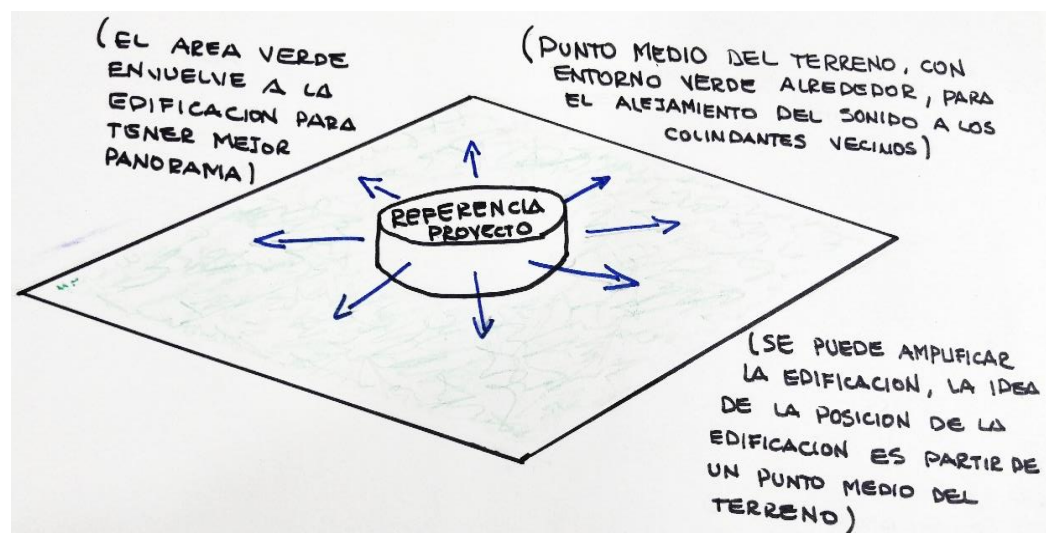 (EL AREA VERDE
ENVUELVE A LA
EDIFICACION PARA
TENER MEJOR
PANORAMA)
(PUNTO MEDIO DEL TERRENO, CON
ENTORNO VERDE ALREDEDOR, PARA
EL ALEJAMIENTO DEL SONIDO A LOS
COLINDANTES VECINOS)
REFERENCIA
PROYECTO
(SE PUEDE AMPLIFICAR
LA EDIFICACION, LA IDEA
DE LA POSICION DE LA
EDIFICACION ES PARTIR DE
UN PUNTO MEDIO DEL
TERRENO)